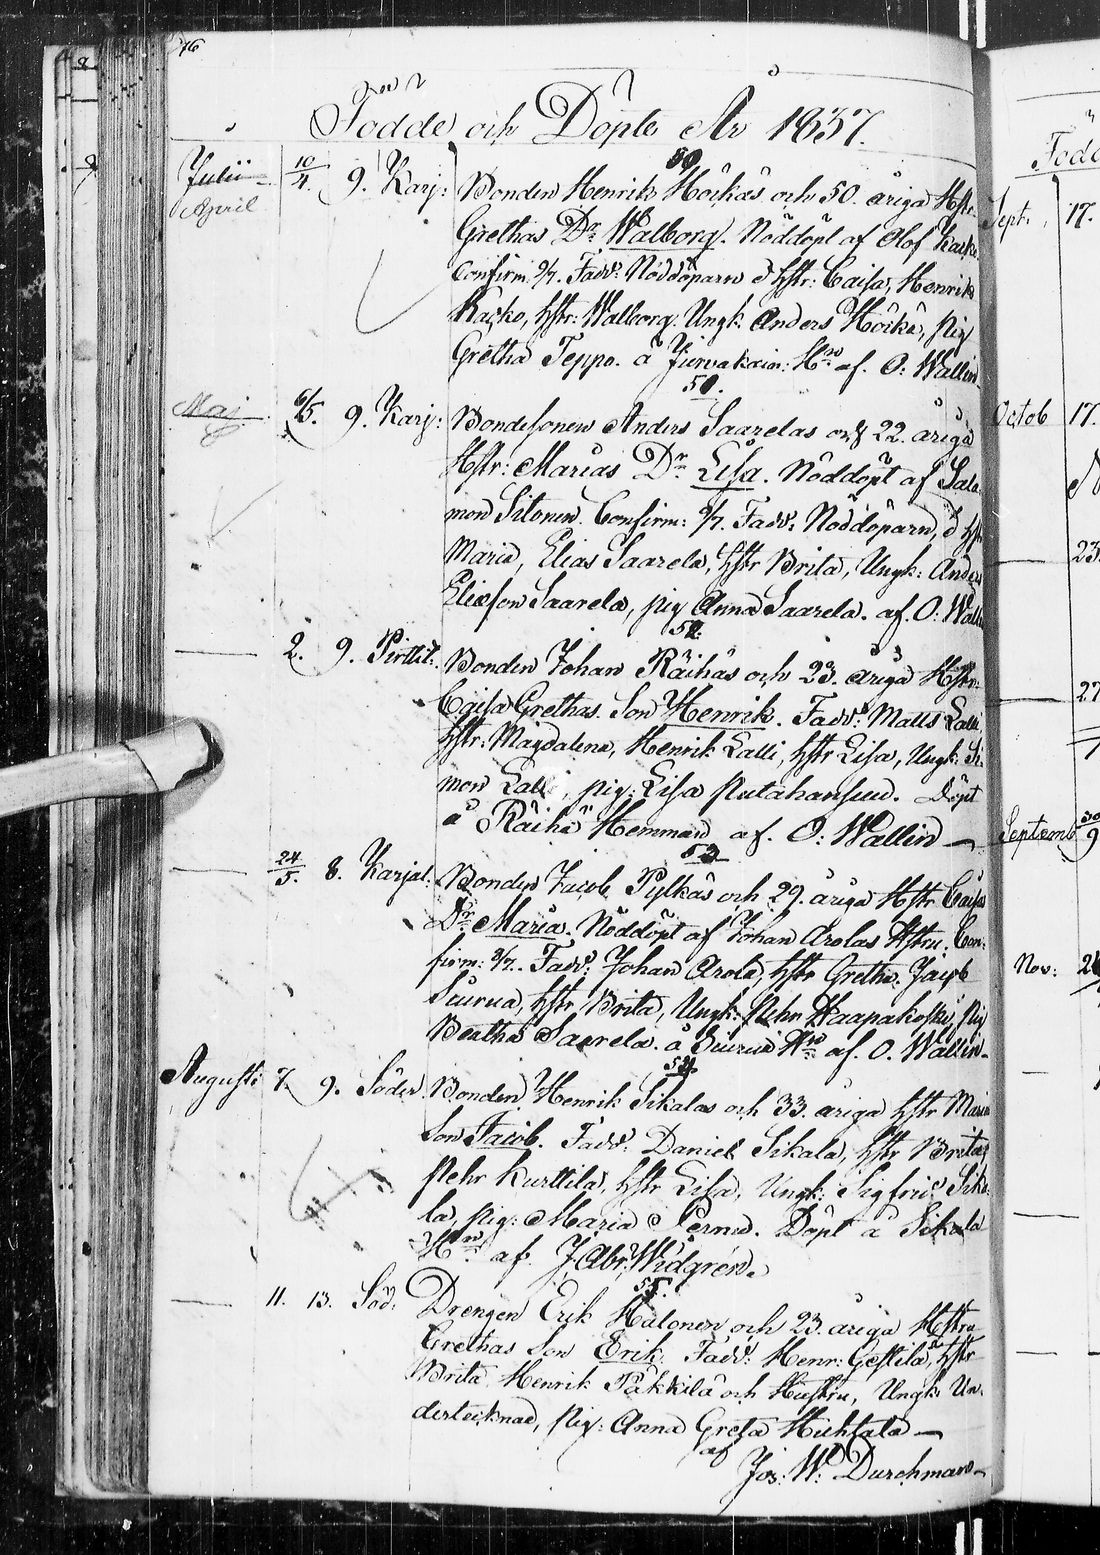 76
Födde och Döpte År 1837.
50.
Julii 10/4. 9. Karj: Bonden Henrik Höckäs och 50. åriga Hstr.
April Grethas Dr Walborg. Nöddöpt af Olof Kasko
Confirm: 9/7. Fadd: Nöddöparn o hstr: Caisa, Henrik
Kasko, hstr: Walborg. Ungk: Anders Höckä, pig
Gretha Teppo. å Jurvakain: Hn af. O: Wallin
51.
Maj 6/5. 9. Karj: Bondesonen Anders Saarelas och 22. åriga
Hstr: Marias Dr Lisa. Nöddöpt af Salo
mon Sitonen. Confirm: 9/7. Fadd: Nöddöparn, o hstr
Maria, Elias Saarela, hstr Brita, Ungk: Anders
Eliæson Saarela, pig Anna Saarela. af. O: Wallin
52.
2. 9. Pirttil: Bonden Johan Räihäs och 23. åriga Hstr:
Caisa Grethas. Son Henrik. Fadd: Matts Lalli
hstr: Magdalena, Henrik Lalli, hstr Lisa, Ungk: Si
mon Lalli, pig: Lisa Putahansuu. Döpt
å Räihä Hemman af. O: Wallin
53
24/5. 8. Karjal: Bonden Jacob Pylkäs och 29. åriga Hstr Caisas
Dr Maria. Nöddöpt af Johan Arolas Hstru. Con
firm: 9/7. Fadd: Johan Arola, hstr Gretha. Jacob
Siurua, hstr, Brita, Ungk: Pehr Haapakoski, pig
Beatha Saarela. å Siurua Hn af. O. Wallin
54.
Augusti 7. 9. Söder. Bonden Henrik Sikalas och 33. åriga hstr Marias
Son Jacob. Fadd: Daniel Sikala, hstr Brita,
Pehr Kurttila, hstr Lisa, Ungk: Sigfrid Sika
la, pig: Maria Perna. Döpt å Sikala
Hn af. J. Abr: Widgrén.
55.
11. 13. Söd: Drengen Erik Halonen och 23. åriga Hstru
Grethas Son Erik. Fadd: Henr: Gestilä, hstr
Brita Henrik Päkkilä och Hustru, Ungk: Un
dertecknad, Pig: Anna Greta Huhtala
af
Jos: W: Durchman
Sept: 17.
Octob 17.
23.
27
Septemb 30/9
Nov: